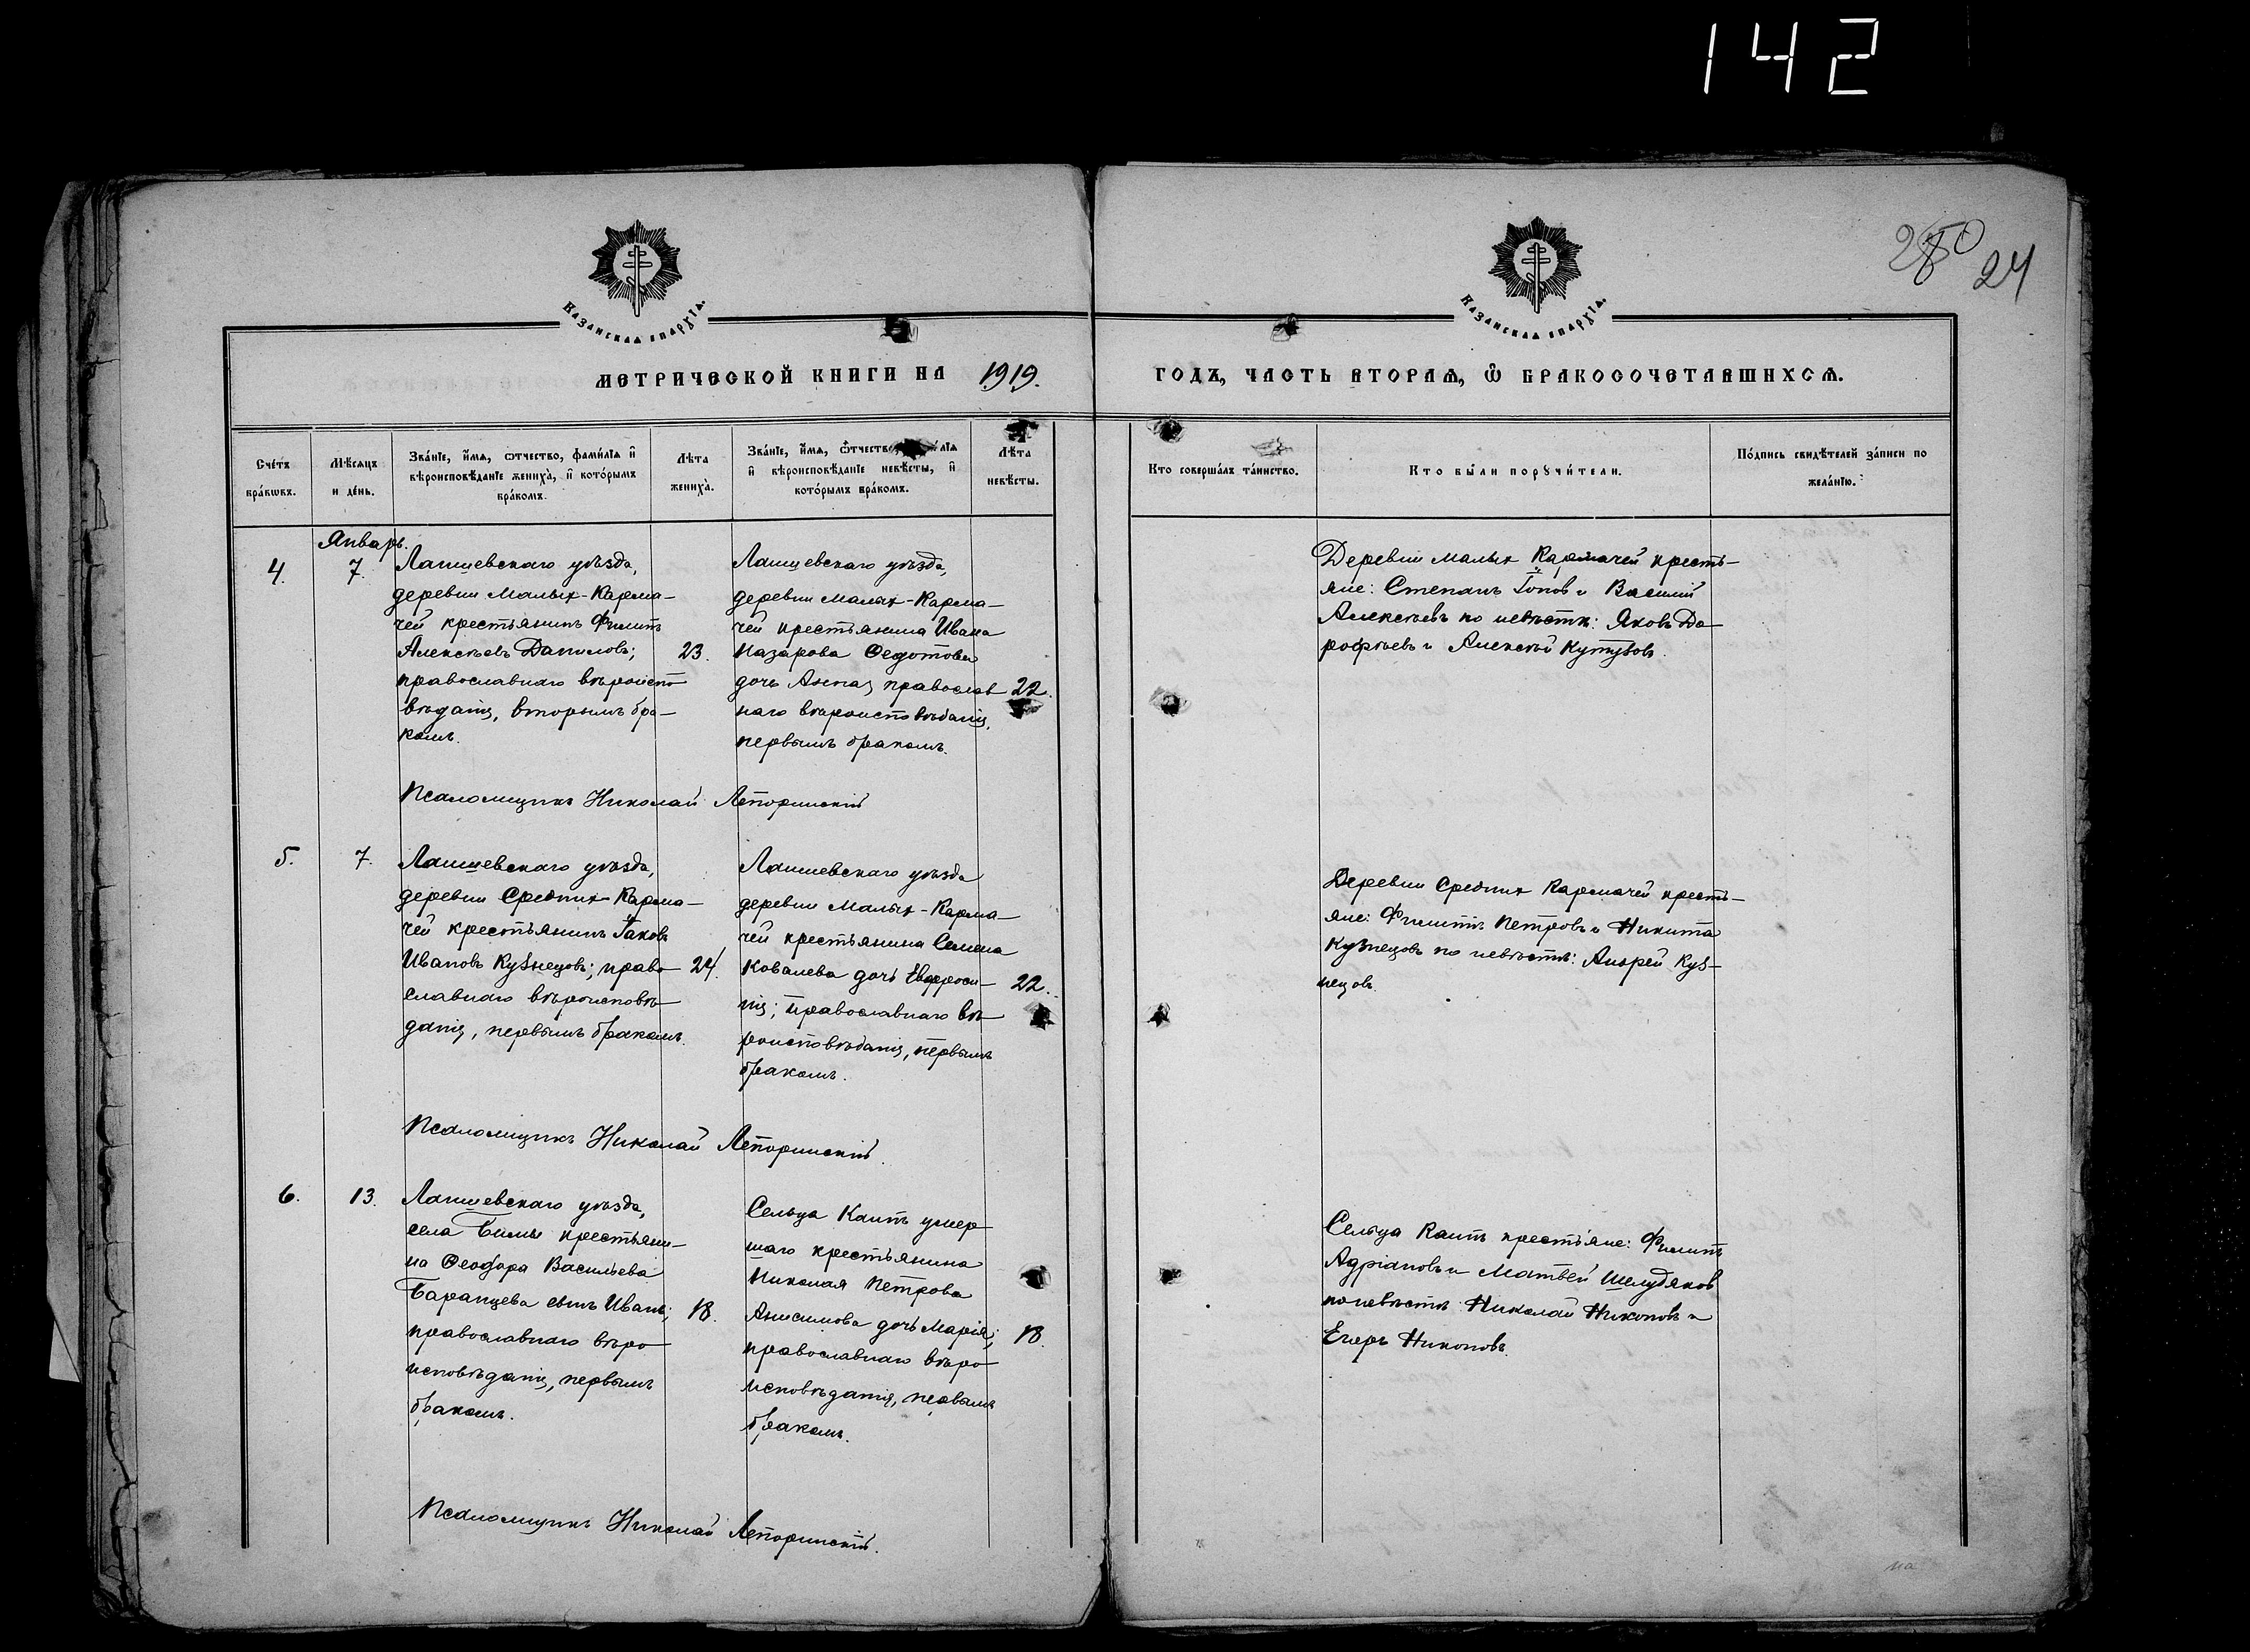 142
280
24
Казанская епархіѧ.
Казанская епархіѧ.
МЕТРИЧЕСКОЙ КНИГИ НА 1919.
ГОДЪ, ЧАСТЬ ВТОРАѦ, Ѽ БРАКОСОЧЕТАВШИХСѦ.
Счетъ бракѡвъ.
Мѣсяцъ и день.
Званіе, имя, ѡтчество, фамилія и
вѣроисповѣданіе жениха, и которымъ
бракомъ.
Лѣта
жениха.
Званіе, имя, ѡтчество,
и вѣроисповѣданіе невѣсты, и
которымъ бракомъ.
Лѣта
невѣсты.
Кто совершалъ таинство.
Кто были поручители.
Подпись свидѣтелей записи по
желанію.
Январь.
4.
7.
Лаишевскаго уѣзда,
деревни Малыхъ-Карма-
чей крестьянинъ Филиппъ
Алексѣевъ Даниловъ;
православнаго вѣроиспо
вѣданія, вторымъ бра-
комъ.
23.
Лаишевскаго уѣзда,
деревни Малых-Карма-
чей крестьянина Ивана
Назарова Федотова
дочь Анна, православ
наго вѣроисповѣданія,
первымъ бракомъ.
22.
Деревни Малых Кармачей кресть-
яне: Степанъ и Василій
Алексѣевъ по невѣстѣ: Яковъ До
рофѣевъ и Алексѣй Кутузовъ.
Псаломщикъ Николай Лепоринскій
5.
7.
Лаишевскаго уѣзда,
деревни Среднихъ-Карма-
чей крестьянинъ Іаковъ
Ивановъ Кузнецовъ; право
славнаго вѣроисповѣ-
данія, первымъ бракомъ.
24.
Лаишевскаго уѣзда
деревни Малых-Карма-
чей крестьянина Семена
Ковалева дочь Евфроси-
нія; православнаго вѣ
роисповѣданія, первымъ
бракомъ.
22.
Деревни Средних Кармачей кресть-
яне: Филиппъ Петровъ и Никита
Кузнецовъ по невѣстѣ: Андрей Куз-
нецовъ.
Псаломщикъ Николай Лепоринскій.
6.
13.
Лаишевскаго уѣзда,
села крестьяни-
на Ѳеодора Васильева
Баранцева сынъ Иванъ;
православнаго вѣро
исповѣданія, первымъ
бракомъ.
18.
Сельца Каипъ умер
шаго крестьянина
Николая Петрова
Анисимова дочь Марія;
православнаго вѣро
исповѣданія, первымъ
бракомъ.
18.
Сельца Каипъ крестьяне: Филиппъ
Адріановъ и Матвей Шелудяков
по невѣстѣ: Николай Никоновъ и
Егоръ Никоновъ.
Псаломщикъ Николай Лепоринскій.